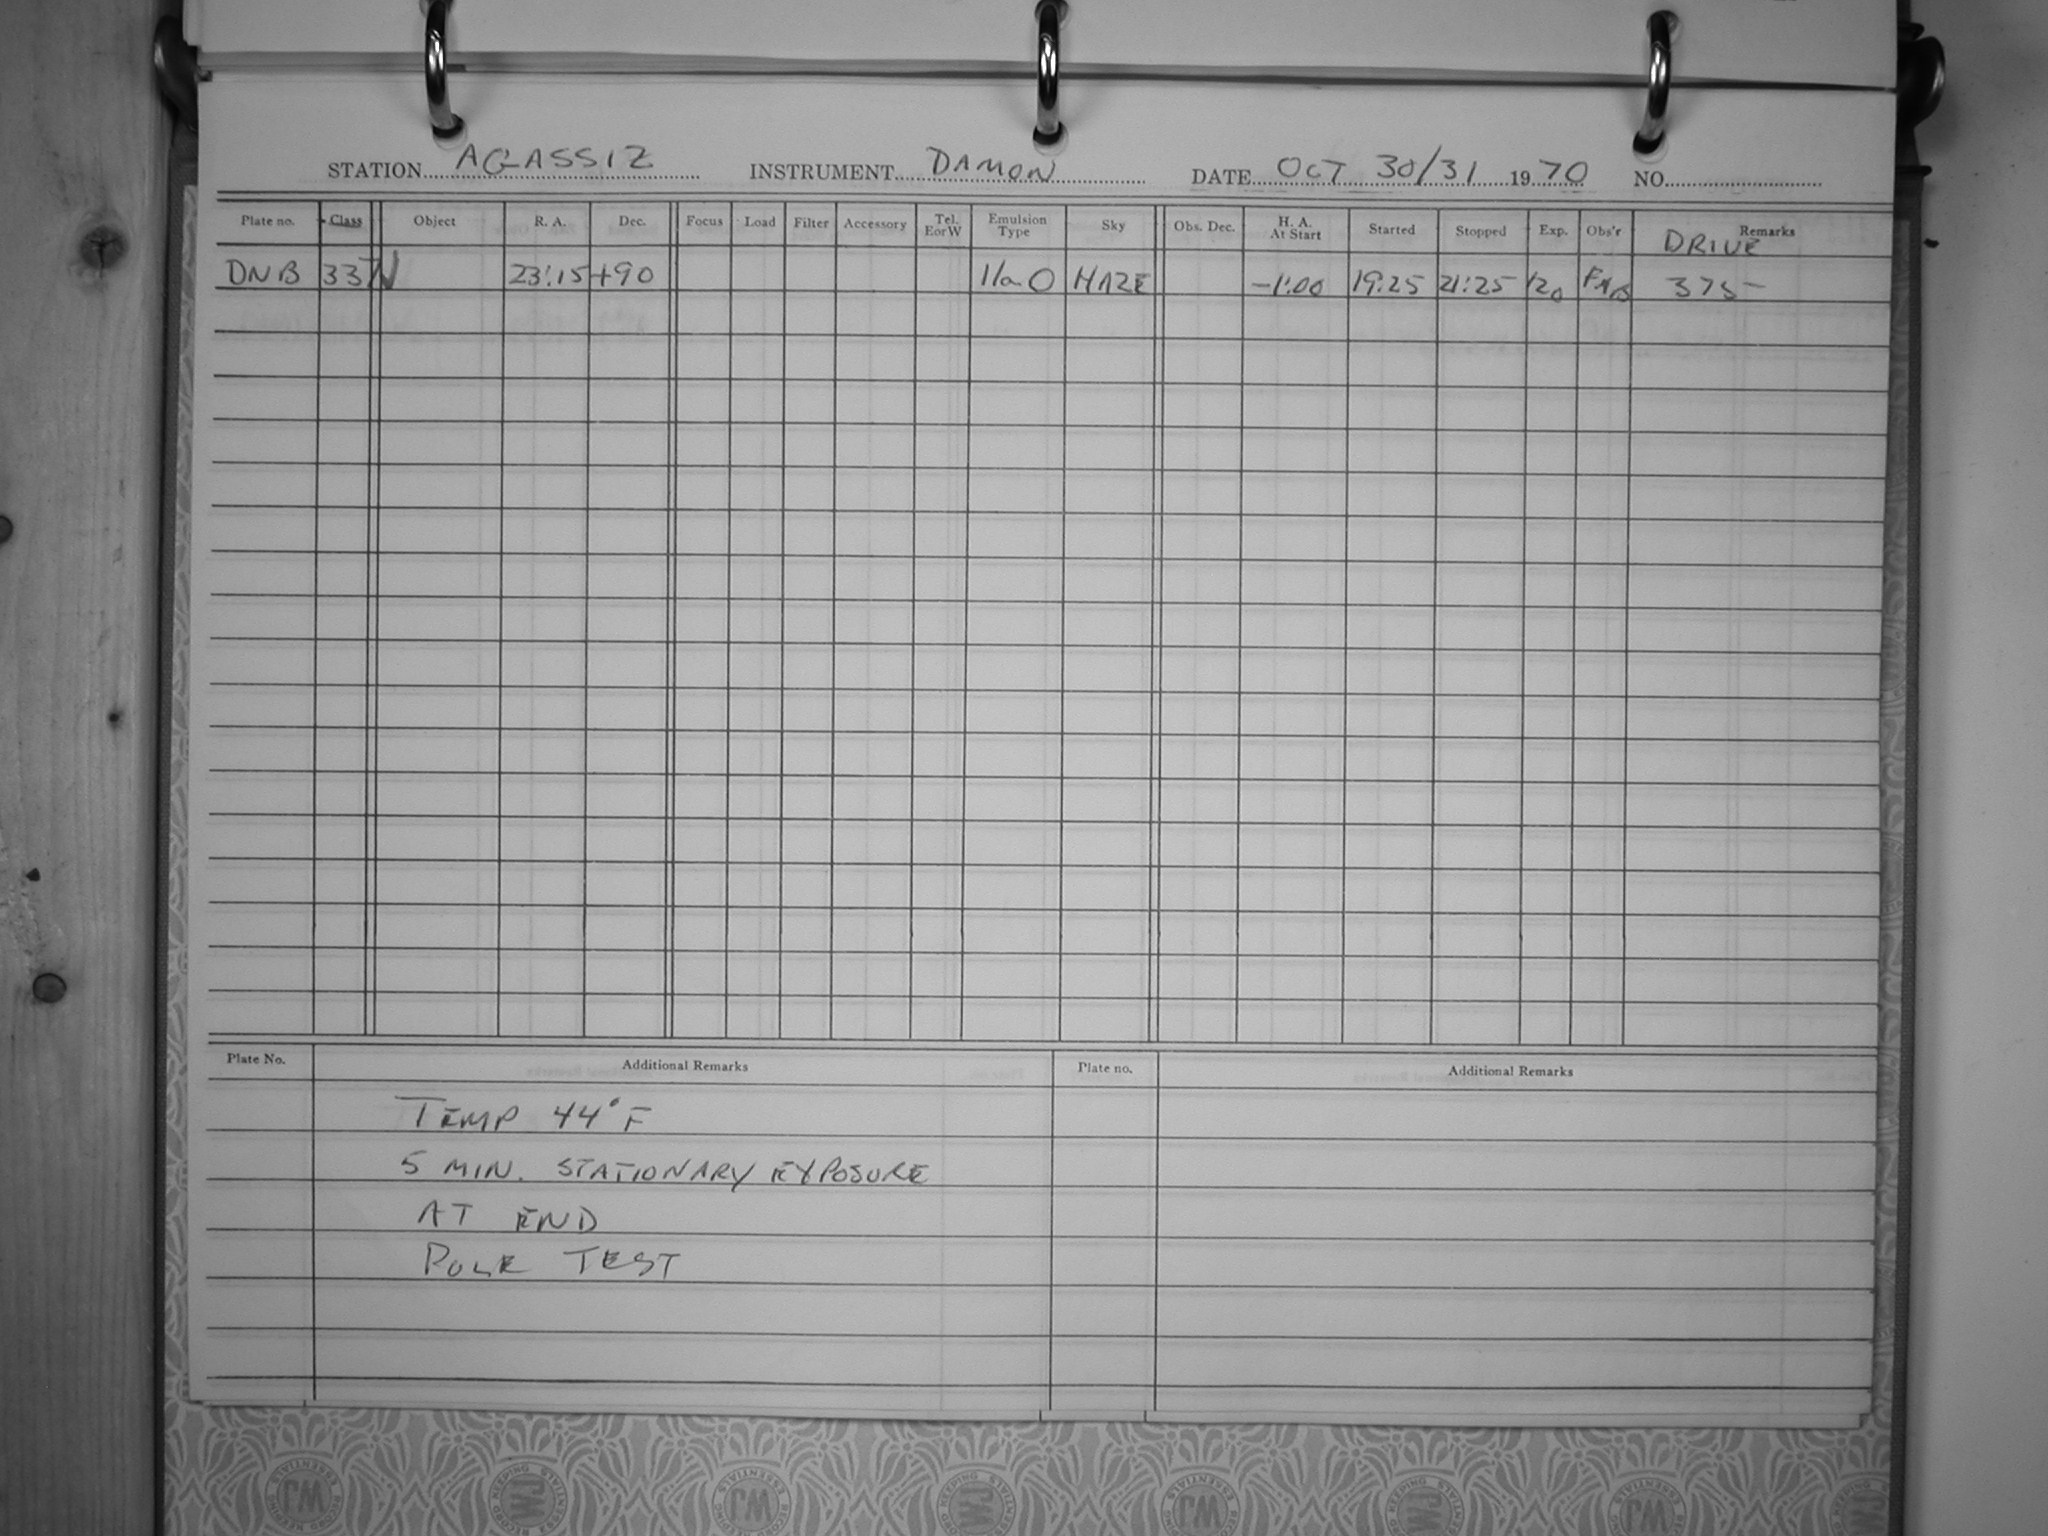 STATION AGASSIZ INSTRUMENT DAMON DATE OCT 30/31 1970 NO.
Plate no. Class Object R. A. Dec. Focus Load Filter Accessory Tel. E or W Emulsion Type Sky Obs. Dec. H. A. At Start Started Stopped Exp. Obs'r Remarks
DRIVE
DNB 337N 23:15 +90 IIa O HAZE -1:00 19:25 21:25 120 375-
Plate No. Additional Remarks Plate no. Additional Remarks
TEMP 44°F
5 MIN. STATIONARY EXPOSURE
AT END
POLE TEST